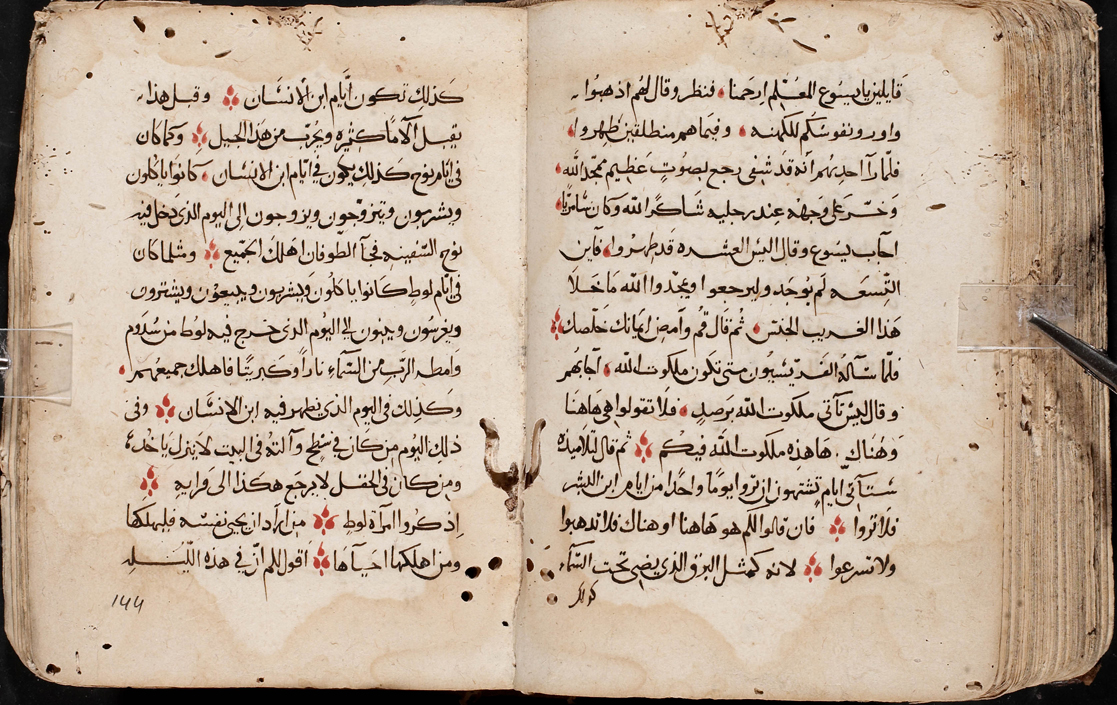 قايلين يا يسوع المعلم ارحمنا فنظر وقال لهم اذهبوا
واورو نفوسكم للكهنه وفيما هم منطلقين طهروا
فلما راا احدهم انه قد شفى رجع لصوت عظيم ممجد الله
وخر على وجهه عند رجليه شاكرا لله وكان سامريا
اجاب يسوع وقال اليس العشره قد طهروا فاين
التسعه لم يوجدو ليرجعوا ويمجدوا الله ما خلا
هذا الغريب الجنس ثم قال قم وامض ايمانك خلصك
فلما سآله الفريسيون متى تكون ملكوت الله اجابهم
وقال ليس تآتى ملكوت الله برصد فلا تقولوا هى هاهنا
وهناك هاهذه ملكوت الله فيكم ثم قال لتلاميذه
ستآتى ايام تشتهون ان تروا يوما واحدا من ايام ابن البشر
فلا تروا فان قالوا لكم هو هاهنا او هناك فلا تدهبوا
ولا تسرعوا لانه كمثل البرق الذى يضى تحت السمآء
كذلك
كذلك تكون ايام ابن الانسان وقبل هذا
يقبل آلاما كثيره ويجرب من هذا الجيل وكما كان
فى ايام نوح كذلك يكون فى ايام ابن الانسان كانوا ياكلون
ويشربون ويتزوجون ويزوجون الى اليوم الذى دخل فيه
نوح السفينه فجآ الطوفان اهلك الجميع ومثلما كان
فى ايام لوط كانوا ياكلون ويشربون ويبيعون ويشترون
ويغرسون ويبنون الى اليوم الذى خرج فيه لوط من سدوم
وامطر الرب من السمآء نارا وكبريتا فاهلك جميعهم
وكذلك فى اليوم الذى يظهر فيه ابن الانسان وفى
ذلك اليوم من كان فى سطح وآلته فى البيت لا ينزل ياخده
ومن كان فى الحقل لا يرجع هكذا الى ورايه
اذكروا امرآة لوط من اراد ان يحيى نفسه فليهلكها
ومن اهلكها احياها اقول لكم ان فى هذه الليله
144